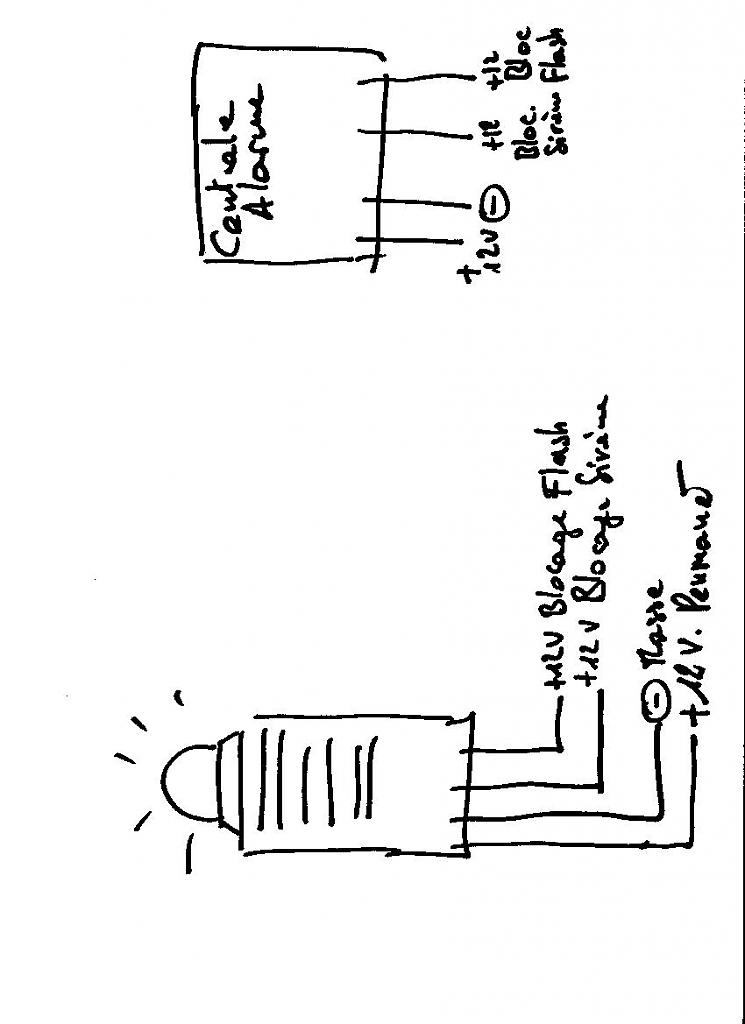 Centrale
Alarme
+12V
⊖
+12
Bloc.
Sirène
+12
Bloc
Flash
+12V Blocage Flash
+12V Blocage Sirène
⊖ Masse
+12V. Permanet